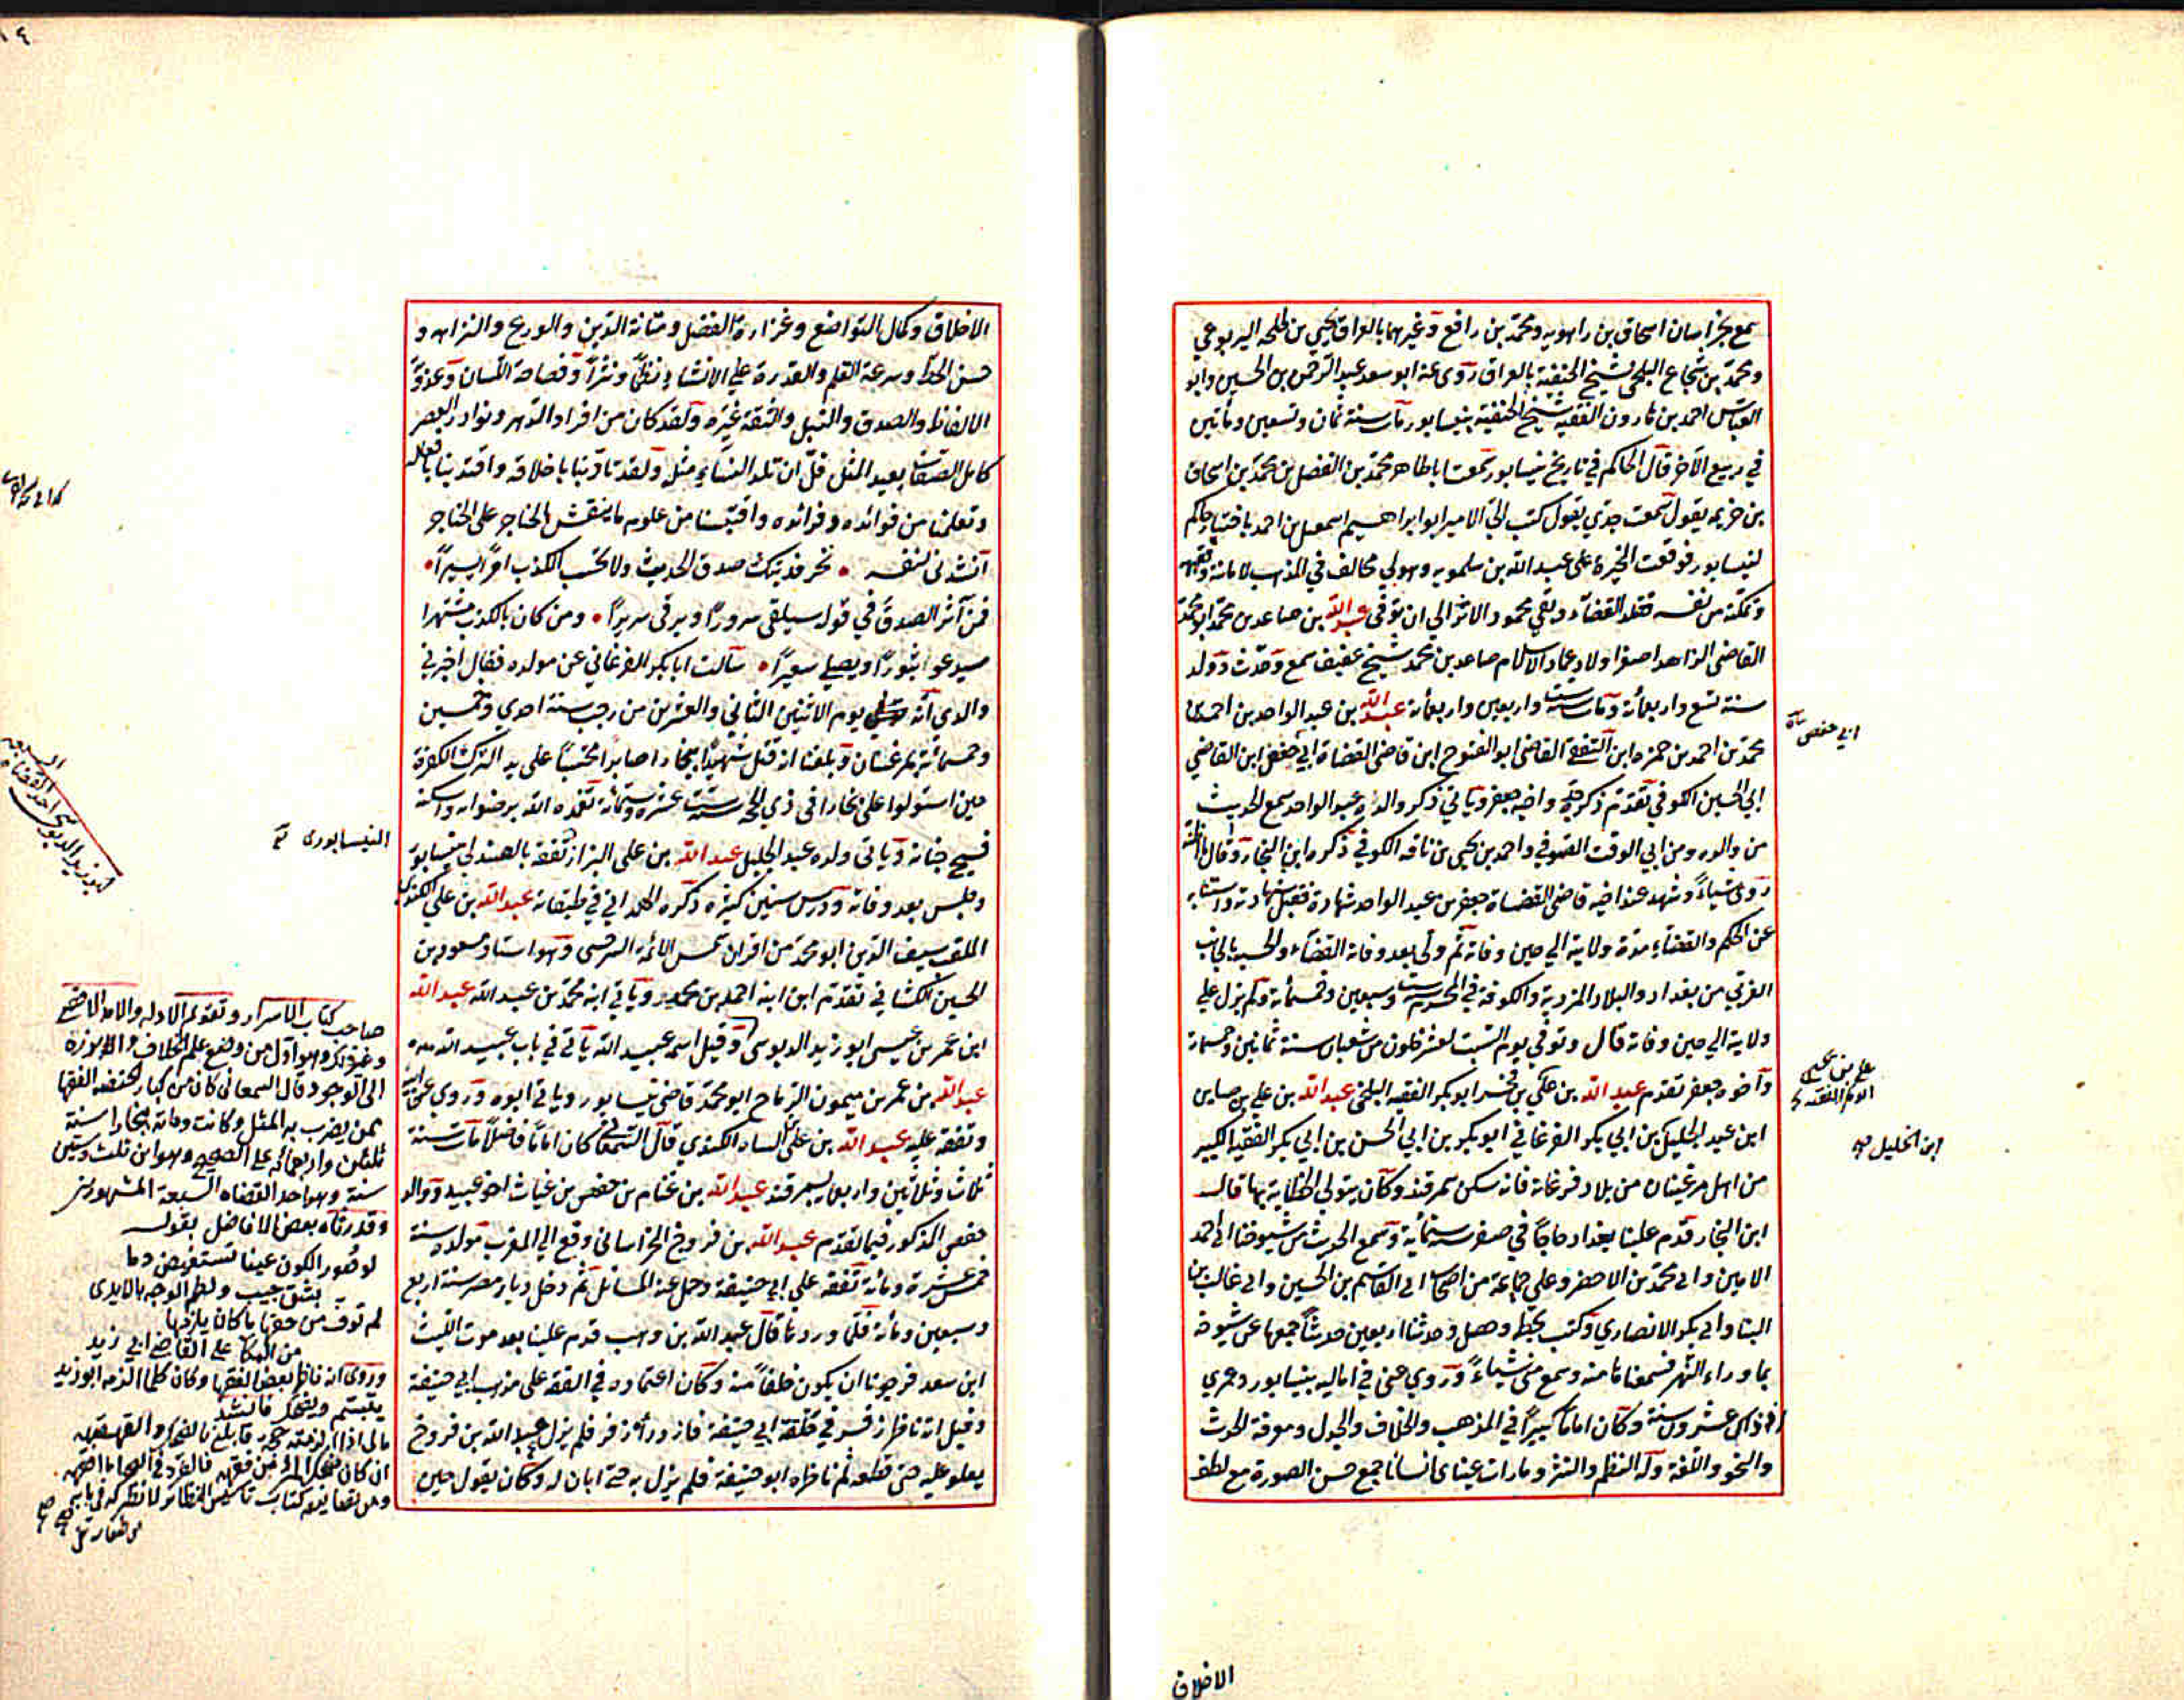 سمع بخراسان اسحاق بن راهويه ومحمد بن رافع وغيرهما بالعراق يحيى بن طلحه اليربوعي
ومحمد بن شجاع البلخي شيخ الحنفية بالعراق روى عنه ابو سعد عبد الرحمن بن الحسين وابو
العباس احمد بن هارون الفقيه شيخ الحنفية بنيسابور مات سنة ثمان وتسعين ومأتين
في ربيع الآخر قال الحاكم في تاريخ نيسابور سمعت اباطاهر محمد بن الفضل بن محمد بن اسحاق
بن خزيمه يقول سمعت جدي يقول كتب الي الامير ابو ابراهيم اسمعيل بن احمد باختيار حاكم
لنيسابور فوقعت الخيرة على عبد الله بن سلمويه وهو لي مخالف في المذهب لامانته وفقهه
وتمكنه من نفسه فقلد القضاء وبقي محمود الاثر الي ان توفى عبد الله بن صاعد بن محمد ابو محمد
القاضي الزاهد اصغر اولاد عماد الاسلام صاعد بن محمد شيخ عفيف سمع وحدث وولد
سنة تسع واربعمائة ومات سنة ست واربعين واربعمائة عبد الله بن عبد الواحد بن احمد بن
محمد بن احمد بن حمزه ابن الثقفي القاضي ابو الفتوح ابن قاضي القضاة ابي جعفر ابن القاضي
ابي الحسين الكوفي تقدم ذكر جده واخيه جعفر وياتي ذكر والده عبد الواحد سمع الحديث
من والده ومن ابي الوقت الصوفي واحمد بن يحيى بن ناقه الكوفي ذكره ابن النجار وقال ما اظنه
روى شياء وشهد عند اخيه قاضي القضاة جعفر بن عبد الواحد شهادة فقبل شهادته واستنابه
عن الحكم والقضاء مدة ولايته الي حين وفاته ثم ولي بعد وفاته القضاء والحسبه بالجانب
الغربي من بغداد والبلاد المزديه والكوفة في المحرم سنة ست وسبعين وخمسمائة ولم يزل على
ولايته الي حين وفاته قال وتوفي يوم السبت لعشر خلون من شعبان سنة ثمانين وخمسمائة
وأخوه جعفر تقدم عبد الله بن علي بن فخر ابو بكر الفقيه البلخي عبد الله بن علي بن صاين
ابن عبد الجليل بن ابي بكر الفرغاني ابو بكر بن ابي الحسن بن ابي بكر الفقيه الكبير
من اهل مرغينان من بلاد فرغانة فانه سكن سمرقند وكان يتولي الخطابة بها قال
ابن النجار قدم علينا بغداد حاجا في صفر سنة ستمائة وسمع الحديث من شيوخنا ابي احمد
الامين وابي محمد بن الاخضر وعلي جماعة من اصحاب ابي القاسم بن الحسين وابي غالب بن
البنا وابي بكر الانصاري وكتب بخطه وحصل وحدثنا اربعين حديثا جمعها عن شيوخه
بما وراء النهر فسمعناها منه وسمع مني شياء وروي عني في اماليه بنيسابور وعمري
اذ ذاك عشرون سنة وكان اماما كبيرا في المذهب والخلاف والجدل ومعرفة الحديث
والنحو واللغة وله النظم والنثر وما رات عيناي انسانا جمع حسن الصورة مع لطف
ابي حفص
علي بن يحيى
ابن الخليل
الاخلاق
الاخلاق وكمال التواضع وغزارة الفضل ومتانة الدين والورع والنزاهه و
حسن الخط وسرعة القلم والقدرة على الانشاء نظما ونثرا وفصاحة اللسان وعذوبة
الالفاظ والصدق والنبل والثقة غيره ولقد كان من افراد الدهر ونوادر العصر
كامل الصفات بعيد المثل قل ان تلد النساء مثله ولقد تادبنا باخلاقه واقتدينا بافعاله
وتعلمنا من فوائده وفرائده واقتبسنا من علومه ما ينقش بالخناجر على الحناجر
انشدني لنفسه • تحر فديتك صدق الحديث ولا تحسب الكذب امرا يسيرا •
فمن آثر الصدق في قوله سيلقى سرورا ويرقى سريرا • ومن كان بالكذب مشتهرا
سيدعو ثبورا ويصلى سعيرا • سألت ابا بكر الفرغاني عن مولده فقال اخبرني
والدي انه يوم الاثنين الثاني والعشرين من رجب سنة احدي وخمسين
وخمسمائة بمرغينان وبلغنا انه قتل شهيدا ببخارا صابرا محتسبا على يد الترك الكفرة
حين استولوا على بخارا في ذي الحجه سنة ست عشرة وستمائة تغمده الله برضوانه واسكنه
فسيح جنانه وياتي ولده عبد الجليل عبد الله بن علي البزاز تفقه بالصندلي بنيسابور
وجلس بعد وفاته ودرس سنين كثيرة ذكره الهمداني في طبقاته عبد الله بن علي الكندي
الملقب سيف الدين ابو محمد من اقران شمس الائمه السرخسي وهو استاد مسعود بن
الحسين الكشاني تقدم ابن ابنه احمد بن محمد وياتي ابنه محمد بن عبد الله عبد الله
ابن عمر بن عيسى ابو زيد الدبوسي وقيل اسمه عبيد الله ياتي في باب عبيد الله
عبد الله بن عمر بن ميمون الرماح ابو محمد قاضي نيسابور وياتي ابوه وروي عن ابيه
وتفقه عليه عبد الله بن علي الكندي قال السمعاني كان اماما فاضلا مات سنة
ثلاث وثلاثين واربعمائة بسمرقند عبد الله بن غنام بن حفص بن غياث اخو عبيد ووالد
حفص المذكور فيما تقدم عبد الله بن فروخ الخراساني وقع الي المغرب مولده سنة
خمس عشرة ومائة تفقه على ابي حنيفة وحمل عنه المسائل ثم دخل ديار مصر سنة اربع
وسبعين ومائة فلما وردها قال عبد الله بن وهب قدم علينا بعد موت الليث
ابن سعد فرجونا ان يكون خلفا منه وكان اعتماده في الفقه على مذهب ابي حنيفة
وقيل انه ناظر زفر في حلقة ابي حنيفة فازدراه زفر فلم يزل عبد الله بن فروخ
يعلو عليه حتى قطعه ثم ناظره ابو حنيفة فلم يزل به حتى ابان له وكان يقول حين
النيسابوري
صاحب كتاب الاسرار وتقويم الادله والامد الاقصى
وغيرذلك وهو اول من وضع علم الخلاف وابرزه
الى الوجود قال السمعاني كان من كبار الحنفيه الفقها
ممن يضرب به المثل وكانت وفاته ببخارا سنة
ثلثين واربعمائه على الصحيح وهو ابن ثلث وستين
سنة وهو احد القضاه السبعة المشهورين
وقد رثاه بعض الافاضل بقوله
لو صور الكون عينا تستفيض دما
بشق جيب ولطم الوجه بالايدي
لم توف من حقها ما كان يلزمها
من البكا على القاضي ابي زيد
وروى انه ناظر بعض الفقها وكان كلما الزمه ابو زيد
يتبسم ويضحك فانشد
مالي اذا الزمته حجة قابلني بالضحك والقهقهه
ان كان ضحك المرء من فقهه فالقرد في الصحراء ما افقهه